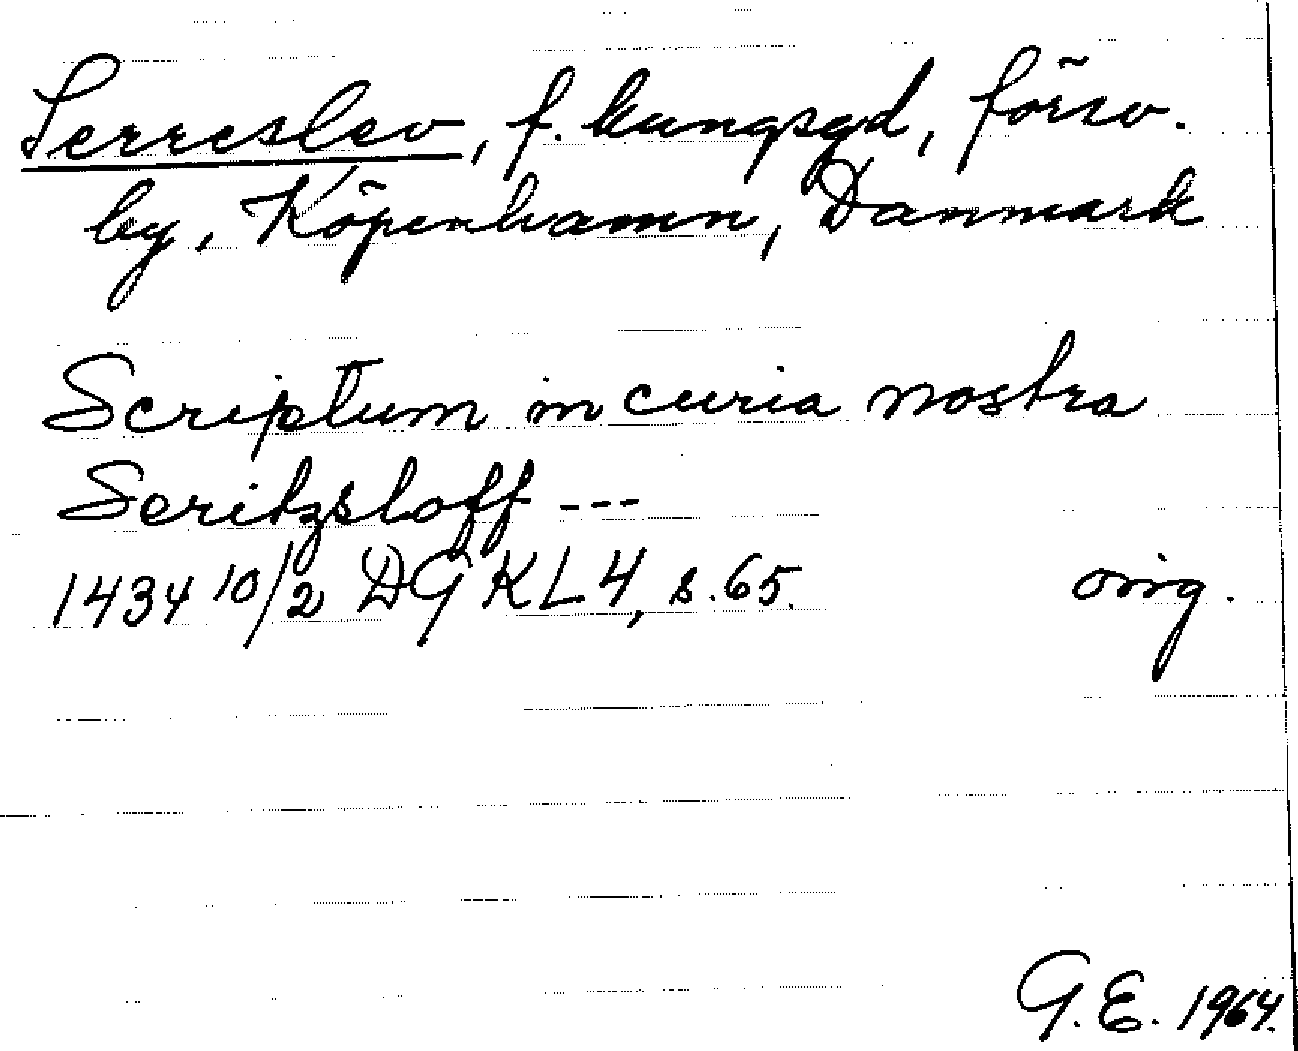 Serreslev, f. kungsgd, försv.
by, Köpenhamn, Danmark
Scriptum in curia nostra
Seritzsloff ---
1434 10/2 DGKL4, s.65. orig.
G.E. 1964.